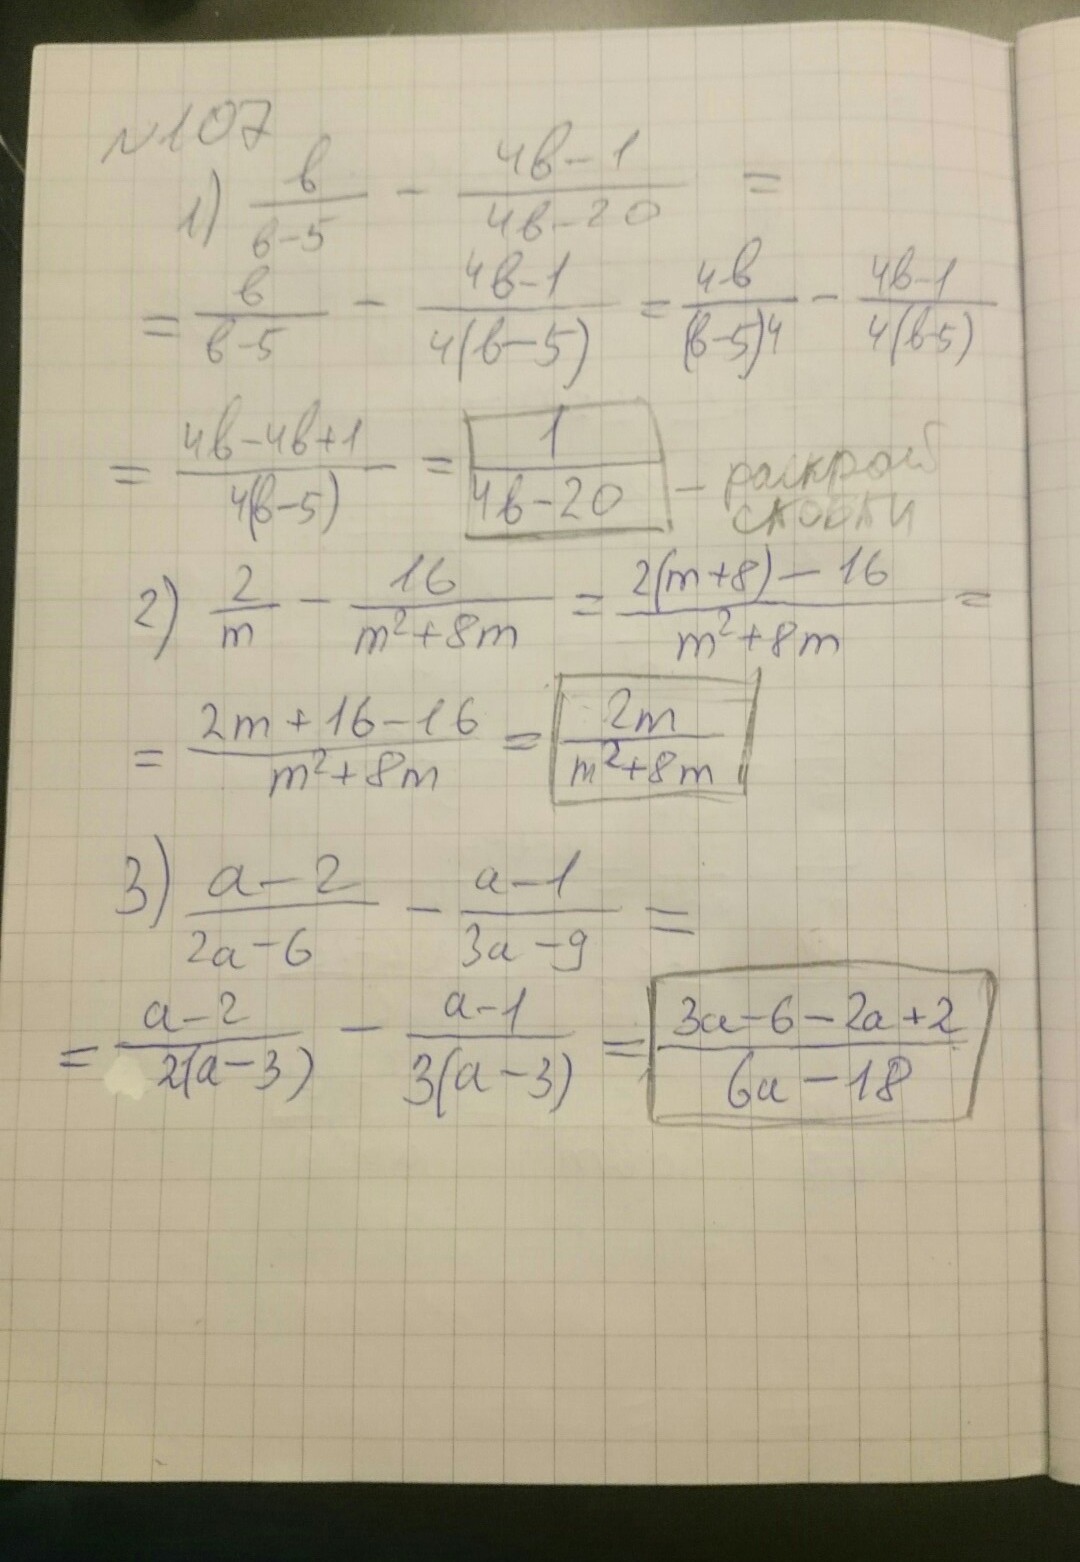 №107
1) в/(в-5) - (4в-1)/(4в-20) =
= в/(в-5) - (4в-1)/(4(в-5)) = 4в/((в-5)4) - (4в-1)/(4(в-5))
= (4в-4в+1)/(4(в-5)) = 1/(4в-20) - раскрой
скобки
2) 2/m - 16/(m²+8m) = (2(m+8)-16)/(m²+8m) =
= (2m+16-16)/(m²+8m) = 2m/(m²+8m)
3) (a-2)/(2a-6) - (a-1)/(3a-9) =
= (a-2)/(2(a-3)) - (a-1)/(3(a-3)) = (3a-6-2a+2)/(6a-18)